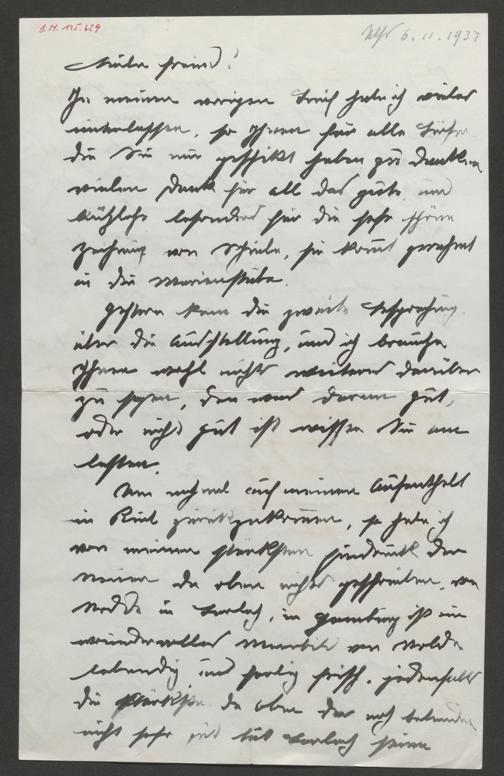 J.N. 145.629
6.11.1933
Lieber Freund!
In meinem vorigen Brief habe ich wieder
unterlassen, so Ihnen für alle
die Sie mir geschickt haben zu danken
vielen Dank für all das gute und
besonders für die sehr schöne
Zeichnung von Schiele, sie kommt gerahmt
in die
Gestern kam die zweite Besprechung
über die Ausstellung, und ich brauche
Ihnen wohl nichts weiteres darüber
zu sagen, denn was daran gut,
oder nicht gut ist wissen Sie am
besten.
Um nochmal auf meinen Aufenthalt
in Kiel zurückzukommen, so habe ich
von meinen stärksten Eindruck der
da oben nichts geschrieben, von
Nolde in Barlach, in Hamburg ist ein
wundervolles von Nolde
lebendig und farbig frisch. jedenfalls
die da oben der noch lebenden
nicht sehr gut tut Barlach seine